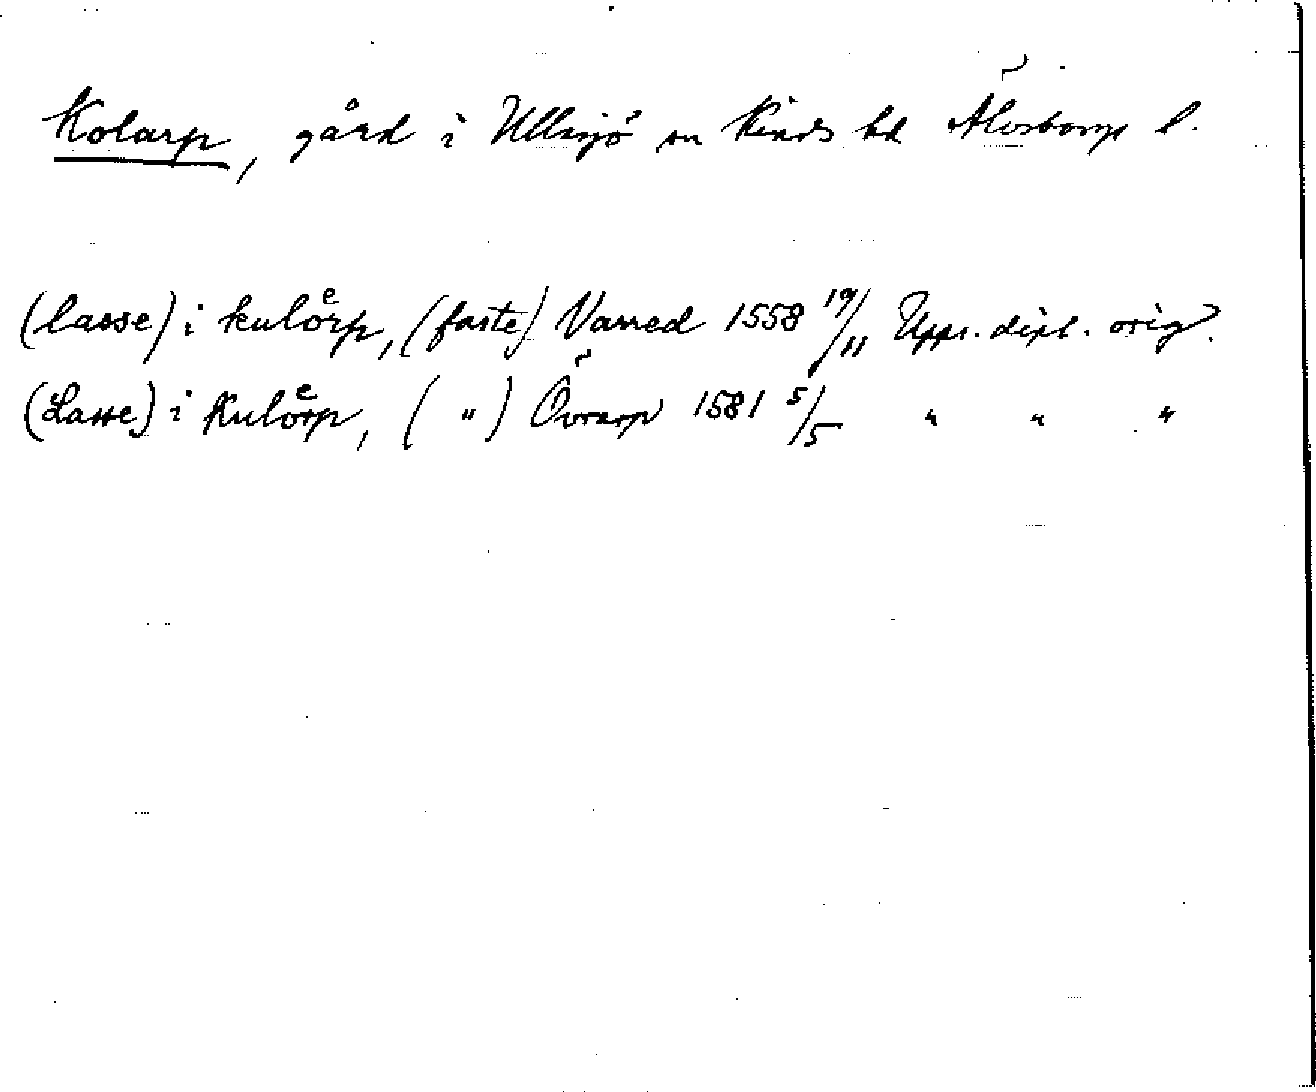 Kolarp, gård i Ullasjö sn Kinds hd Älvsborgs l.
(lasse) i kuloͤrp, (faste) Vanred 1558 19/11 Upps. dipl. orig.
(Lasse) i Kuloͤrp, ( " ) Övrarp 1581 5/5 " " "